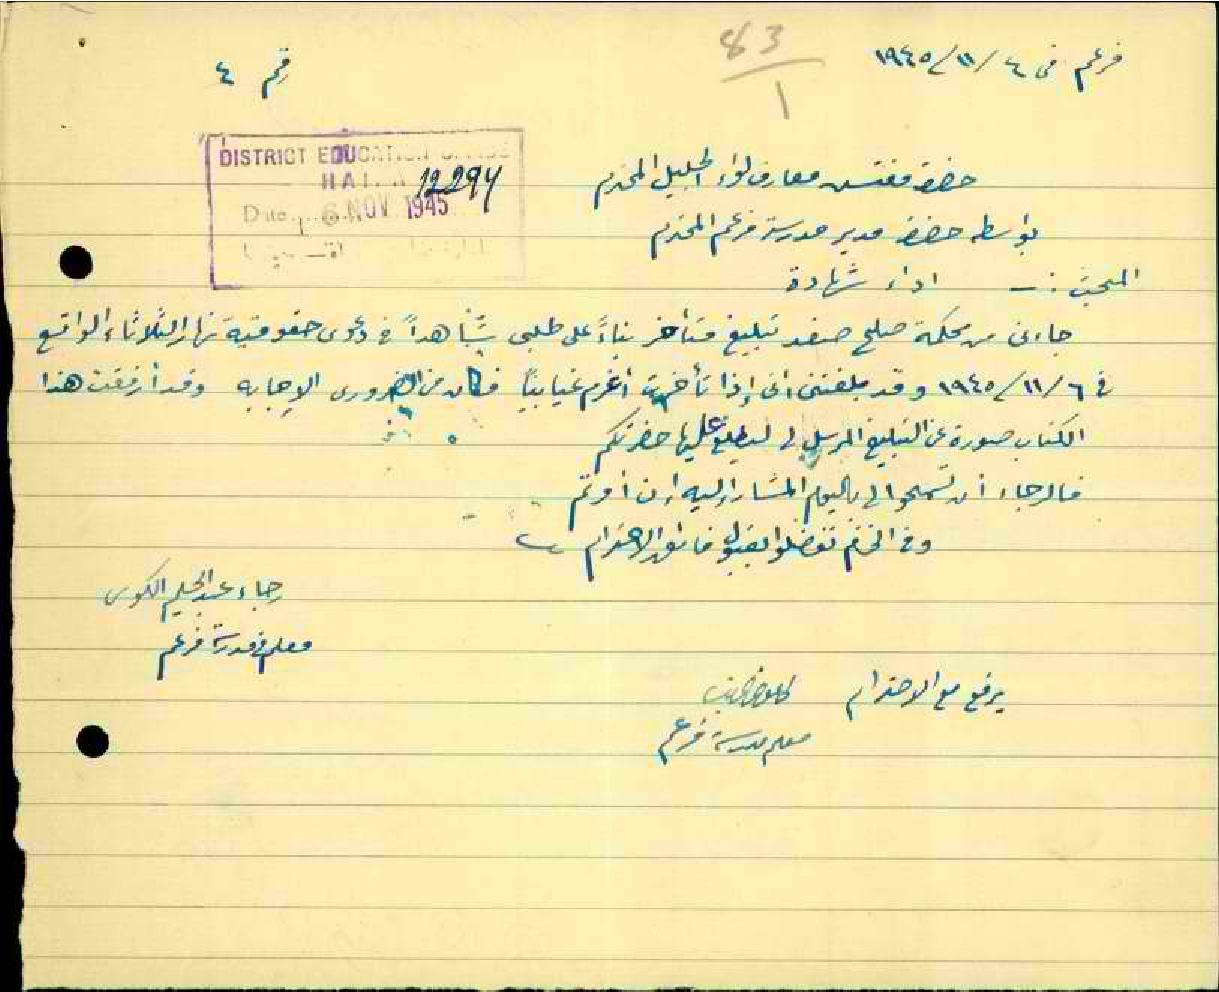 فرعم في ٤ / ١١ / ١٩٤٥
83
1
رقم ٤
DISTRICT EDUCATION OFFICE
HAIFA
12294
Date 6 NOV 1945
حضرة مفتش معارف لواء الجليل المحترم
بواسطة حضرة مدير مدرسة فرعم المحترم
المبحث :ـ اداء شهادة
جاءني من محكمة صلح صفد تبليغ متأخر بناءً على طلبي شاهداً في دعوى حقوقية نهار الثلاثاء الواقع
في ٦ / ١١ / ١٩٤٥ وقد بلغتني أني إذا تأخرت أغرم غيابياً فكان من الضروري الإجابه وقد أرفقت هذا
الكتاب صورة عن التبليغ المرسل لي ليطلع عليها حضرتكم
فالرجاء أن تسمحوا لي باليوم المشار إليه
وفي الختام تفضلوا بقبول فائق الاحترام
رجاء عبد الحليم
معلم في مدرسة فرعم
يرفع مع الاحترام
معلم مدرسة فرعم